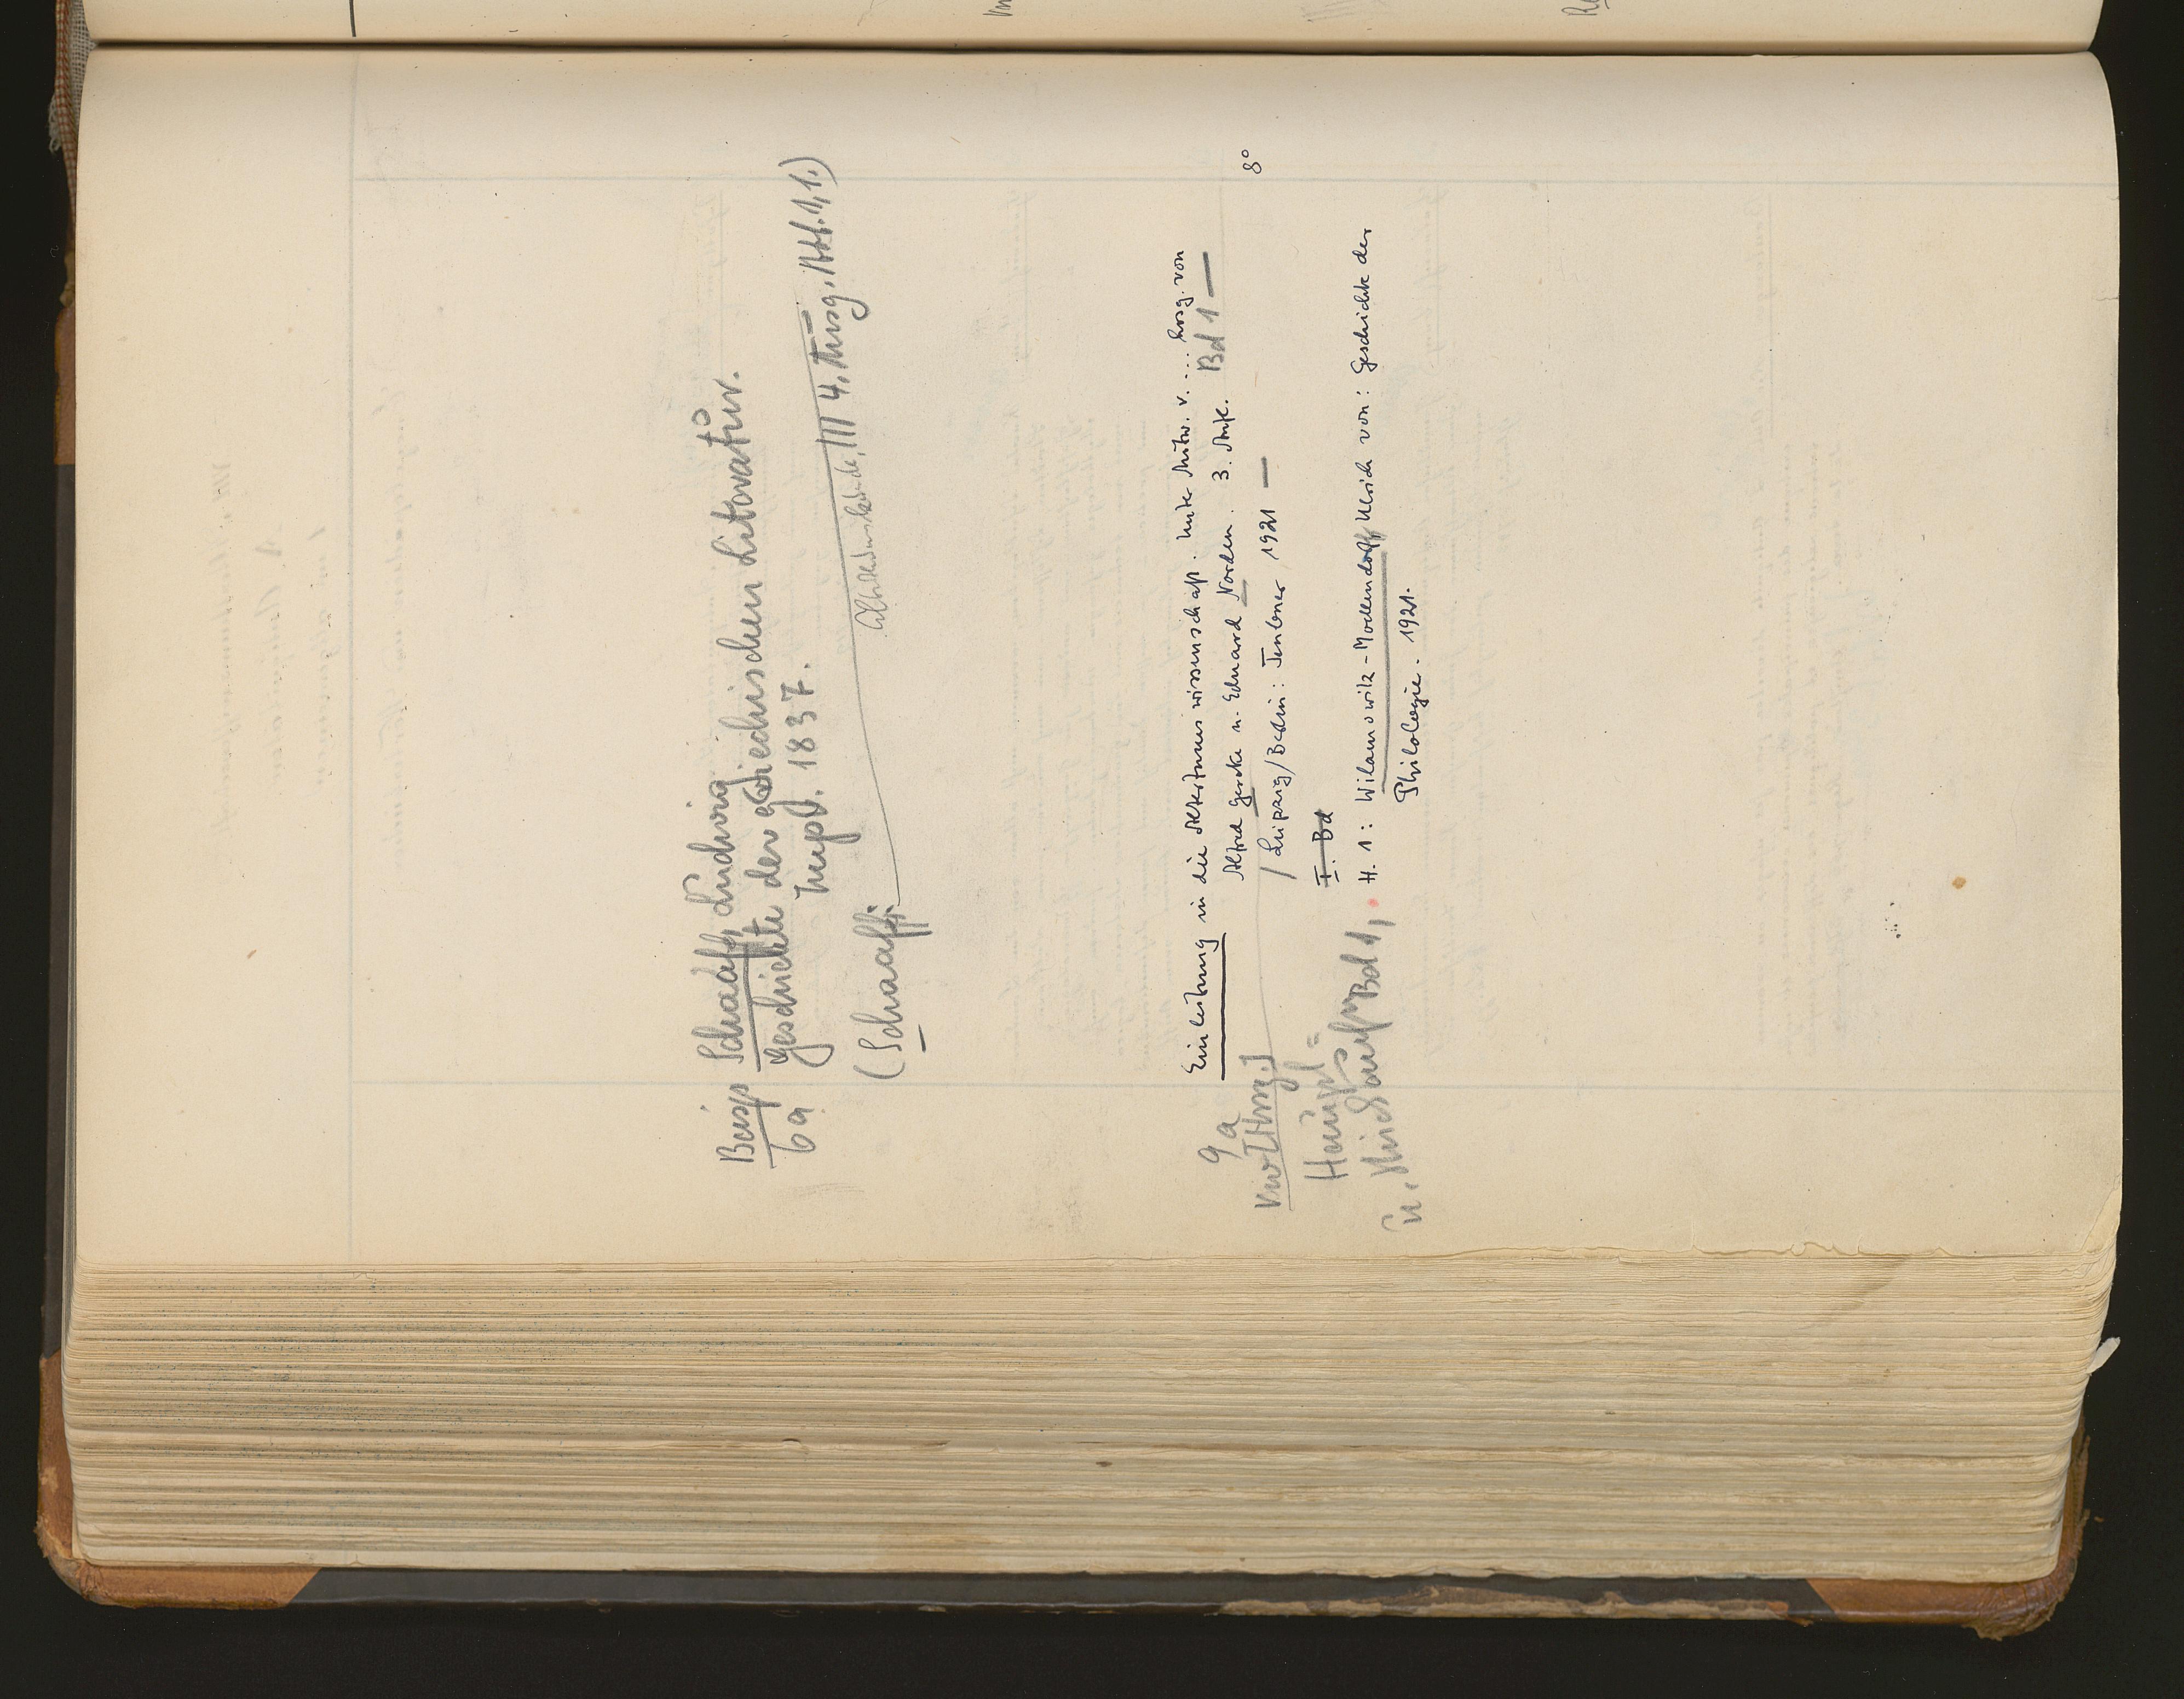 Beisp Schaaff, Ludwig
6a Geschichte der griechischen Literatur.
1837.
(Schaaff: Altertumskunde, III 4. Ausg., Abt. 1,1.)
Einleitung in die Altertumswissenschaft. Unter Mitw. v. ... hrsg. von
9a Alfred Gercke u. Eduard Norden. 3. Aufl. Bd 1 — 8°
/ Leipzig/Berlin: Teubner 1921 —
Haupt=
I. Bd
Bd 1, H. 1: Wilamowitz-Moellendorff Ulrich von: Geschichte der
Philologie. 1921.